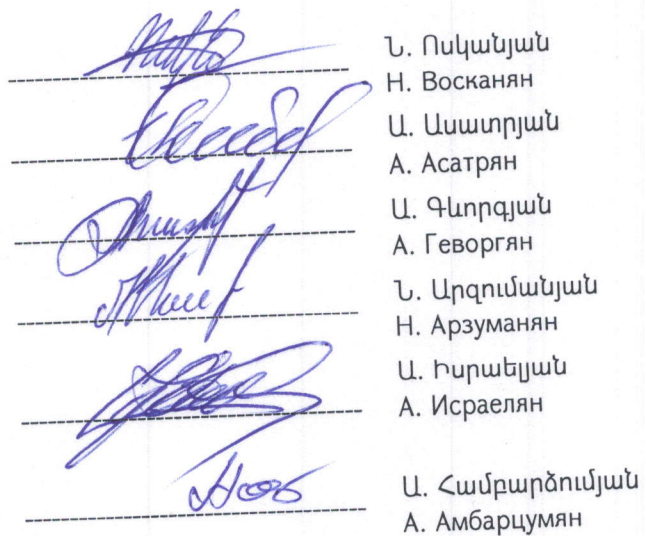 Ն. Ոսկանյան
Н. Восканян
Ա. Ասատրյան
А. Асатрян
Ա. Գևորգյան
А. Геворгян
Ն. Արզումանյան
Н. Арзуманян
Ա. Իսրաելյան
А. Исраелян
Ա. Համբարձումյան
А. Амбарцумян